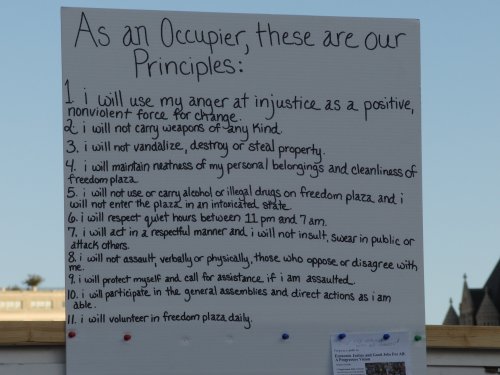 As an Occupier, these are our
Principles:
1 i will use my anger at injustice as a positive,
nonviolent force for change.
2. i will not carry weapons of any kind.
3. i will not vandalize, destroy or steal property.
4. i will maintain neatness of my personal belongings and cleanliness of
freedom plaza
5. i will not use or carry alcohol or illegal drugs on freedom plaza and i
will not enter the plaza in an intoxicated state
6. i will respect quiet hours between 11 pm and 7 am.
7. i will act in a respectful manner and i will not insult, swear in public or
attack others.
8. i will not assault, verbally or physically, those who oppose or disagree with
me.
9. i will protect myself and call for assistance if i am assaulted.
10. i will participate in the general assemblies and direct actions as i am
able.
11. i will volunteer in freedom plaza daily.
Economic Justice and Good Jobs For All:
A Progressive Vision